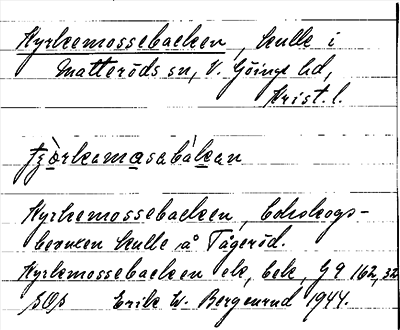 Kyrkemossebacken, kulle i
Matteröds sn, V. Göinge hd,
Krist. l.
Kyrkemossebacken, bokskogs-
bevuxen kulle å Tågeröd.
Kyrkemossebacken ek, bek, J 9 162, 32
SOS Erik W. Bergenrud 1944.